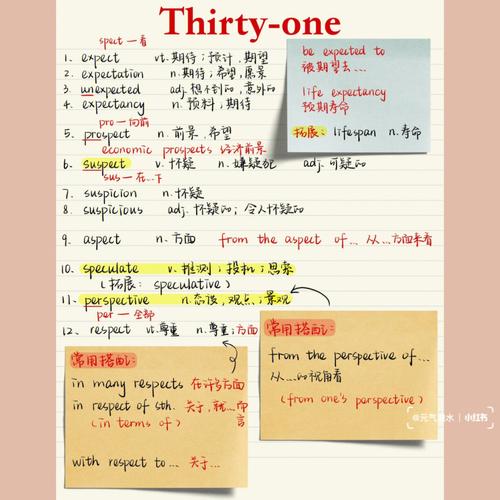 Thirty-one
spect 一看
1. expect vt. 期待；预计，期望
2. expectation n. 期待；希望，愿景
3. unexpected adj. 想不到的，意外的
4. expectancy n. 预料；期待
pro 一向前
5. prospect n. 前景，希望
economic prospects 经济前景
6. suspect v. 怀疑 n. 嫌疑犯 adj. 可疑的
sus 一在...下
7. suspicion n. 怀疑
8. suspicious adj. 怀疑的；令人怀疑的
9. aspect n. 方面 from the aspect of... 从...方面来看
10. speculate v. 推测；投机；思索
（拓展：speculative）
11. perspective n. 态度，观点；景观
per 一全部
12. respect vt. 尊重 n. 尊重；方面
be expected to
被期望去...
life expectancy
预期寿命
拓展：lifespan n. 寿命
常用搭配：
in many respects 在许多方面
in respect of sth. 关于，就...而言
(in terms of)
with respect to... 关于...
常用搭配：
from the perspective of...
从...的视角看
(from one's perspective)
小红书